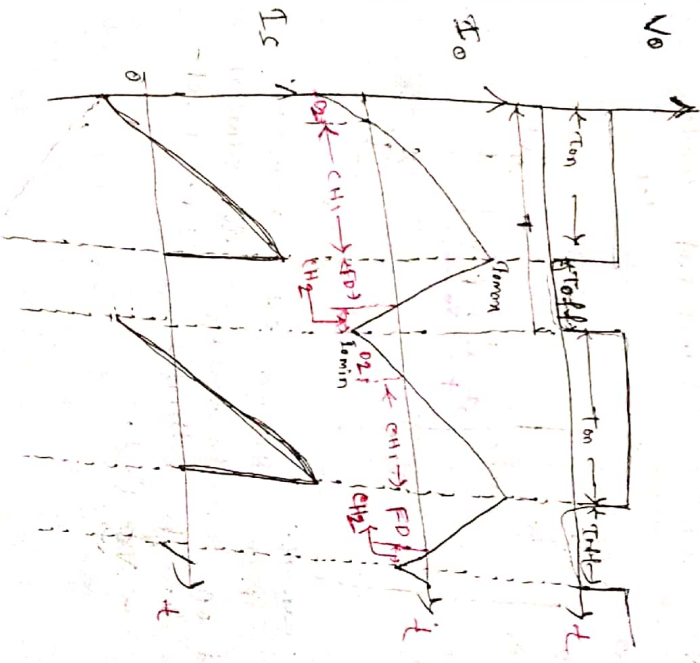 V0
← Ton →
← Toff →
ton
← Toff →
T
t
I0
Iomax
Iomin
D2
← CH1 →
FD
CH2
D2
← CH1 →
FD
CH2
t
Is
0
t